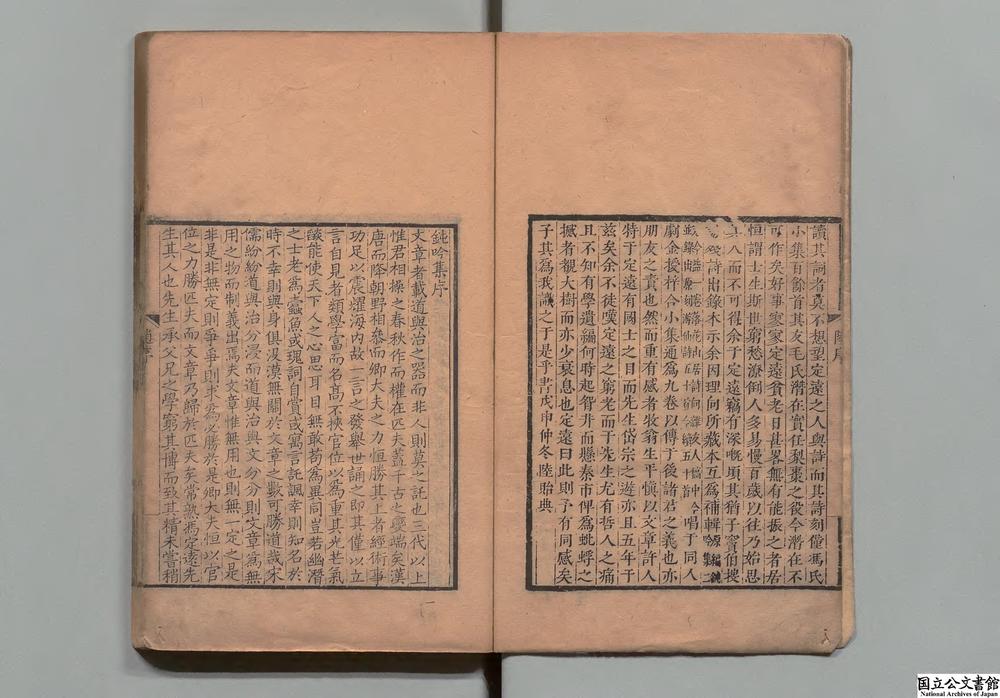 讀其詞者莫不想望定遠之人與詩而其詩刻僅馮氏
小集百餘首其友毛氏潛在實任梨棗之役今潛在不
可作矣好事家家定遠貧老日甚畧無有能振之者居
恒謂士生斯世窮愁潦倒人多易慢百歲以往乃始思
其人而不可得余于定遠竊有深嘅頃其猶子竇伯搜
詩出錄木示余因理向所藏本互爲補輯
五十首
唱于同人
劂金授梓合小集通爲九卷以傳于後諸君之義也亦
朋友之責也然而重有感者牧翁生平愼以文章許人
特于定遠有國士之目而先生岱宗之遊亦且五年于
茲矣余不徒嘆定遠之窮老而于先生尤有哲人之痛
且不知有學遺編何時起眢井而懸秦市俾爲蚍蜉之
撼者覩大樹而亦少衰息也定遠曰此則予有同感矣
子其爲我識之于是乎書戊申仲冬陸貽典
鈍吟集序
文章者載道與治之器而非人則莫之託也三代以上
惟君相操之春秋作而權在匹夫蓋千古之變端矣漢
唐而降朝野相叅而卿大夫之力恒勝其上者經術事
功足以震燿海内故一言之發舉世誦之卽其僅以立
言自見者類學富而名高不挾官位以爲重其光芒氣
燄能使天下人之心思耳目無敢苟爲異同豈若幽潛
之士老爲蠹魚或瑰詞自賞或寓言託諷幸則知名於
時不幸則與身俱沒漠無關於文章之數可勝道哉宋
儒紛紛道與治分浸而道與治與文分分則文章爲無
用之物而制義出焉夫文章惟無用也則無一定之是
非是非無定則爭爭則求必勝於是卿大夫恒以官
位之力勝匹夫而文章乃歸於匹夫矣常熟馮定遠先
生其人也先生承父兄之學窮其博而致其精未嘗稍
一
国立公文書館
National Archives of Japan